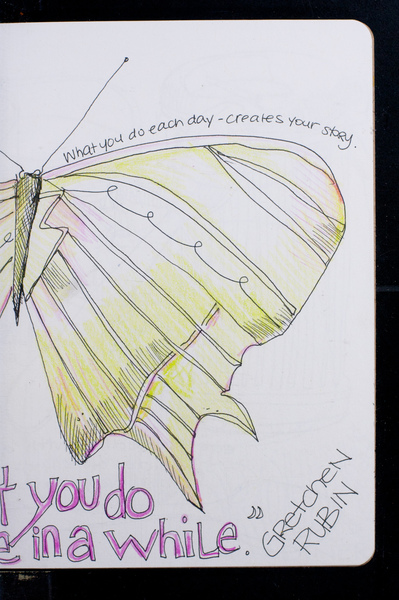 What you do each day - creates your story.
t you do
e in a while."
GRetCHeN
RUBIN